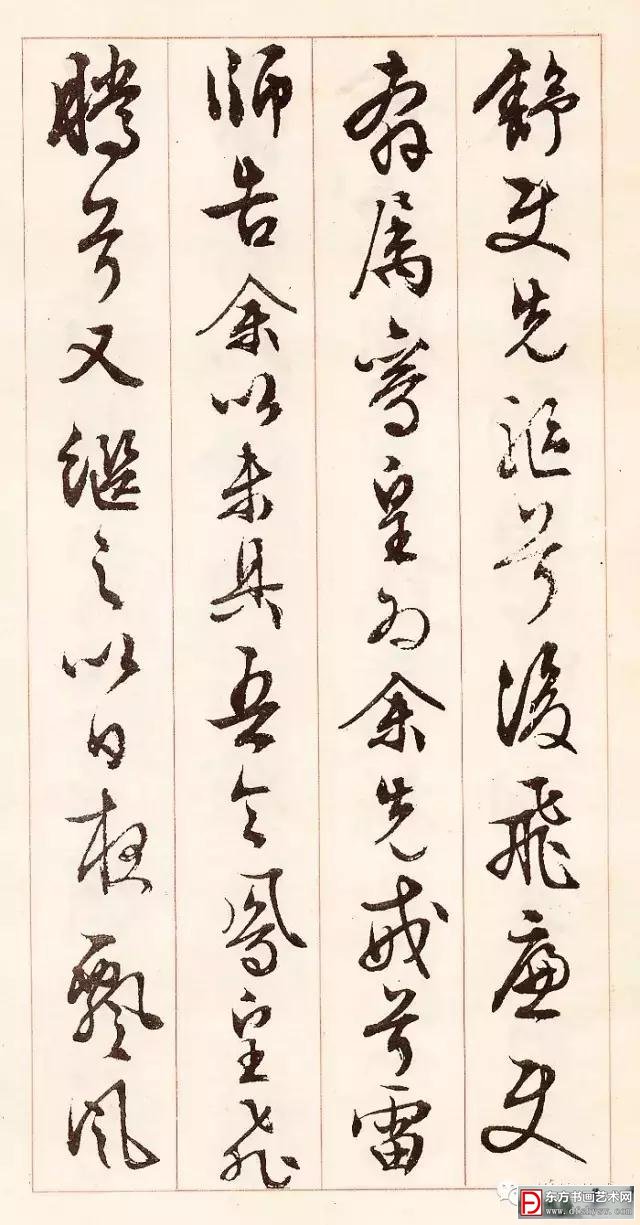 舒使先驅兮後飛廉使
奔属鸞皇为余先戒兮雷
師告余以未具吾令鳳皇飛
騰兮又繼之以日夜飄風
东方书画艺术网